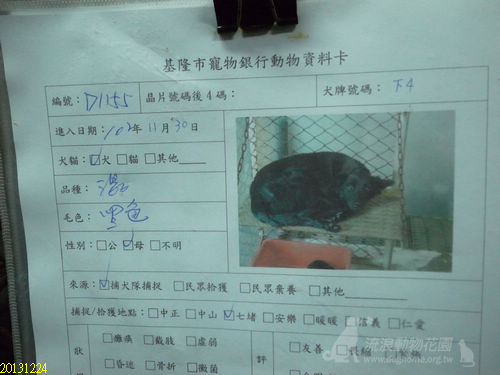 基隆市寵物銀行動物資料卡
編號：D1155 晶片號碼後4碼： 犬牌號碼：下4
進入日期：102年11月30日
犬貓：☑犬 □貓 □其他
品種：混
毛色：黑色
性別：□公 ☑母 □不明
來源：☑捕犬隊捕捉 □民眾拾獲 □民眾棄養 □其他
捕捉/拾獲地點：□中正 □中山 ☑七堵 □安樂 □暖暖 □信義 □仁愛
狀 □癱瘓 □戴肢 □虛弱 評 □友善
□昏迷 □骨折 □黴菌
流浪動物花園
www.doghome.org.tw
20131224